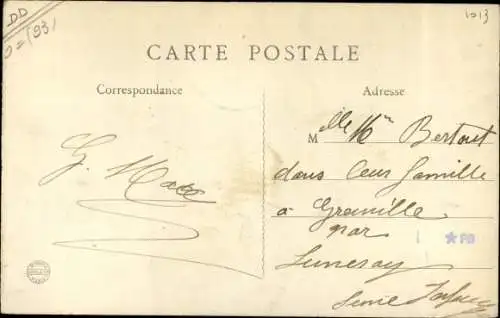 DD
1913
CARTE POSTALE
Correspondance
Adresse
Melle Bertout
dans leur famille
à Greuville
par
Luneray
Seine Infre
G. Mace
*PB